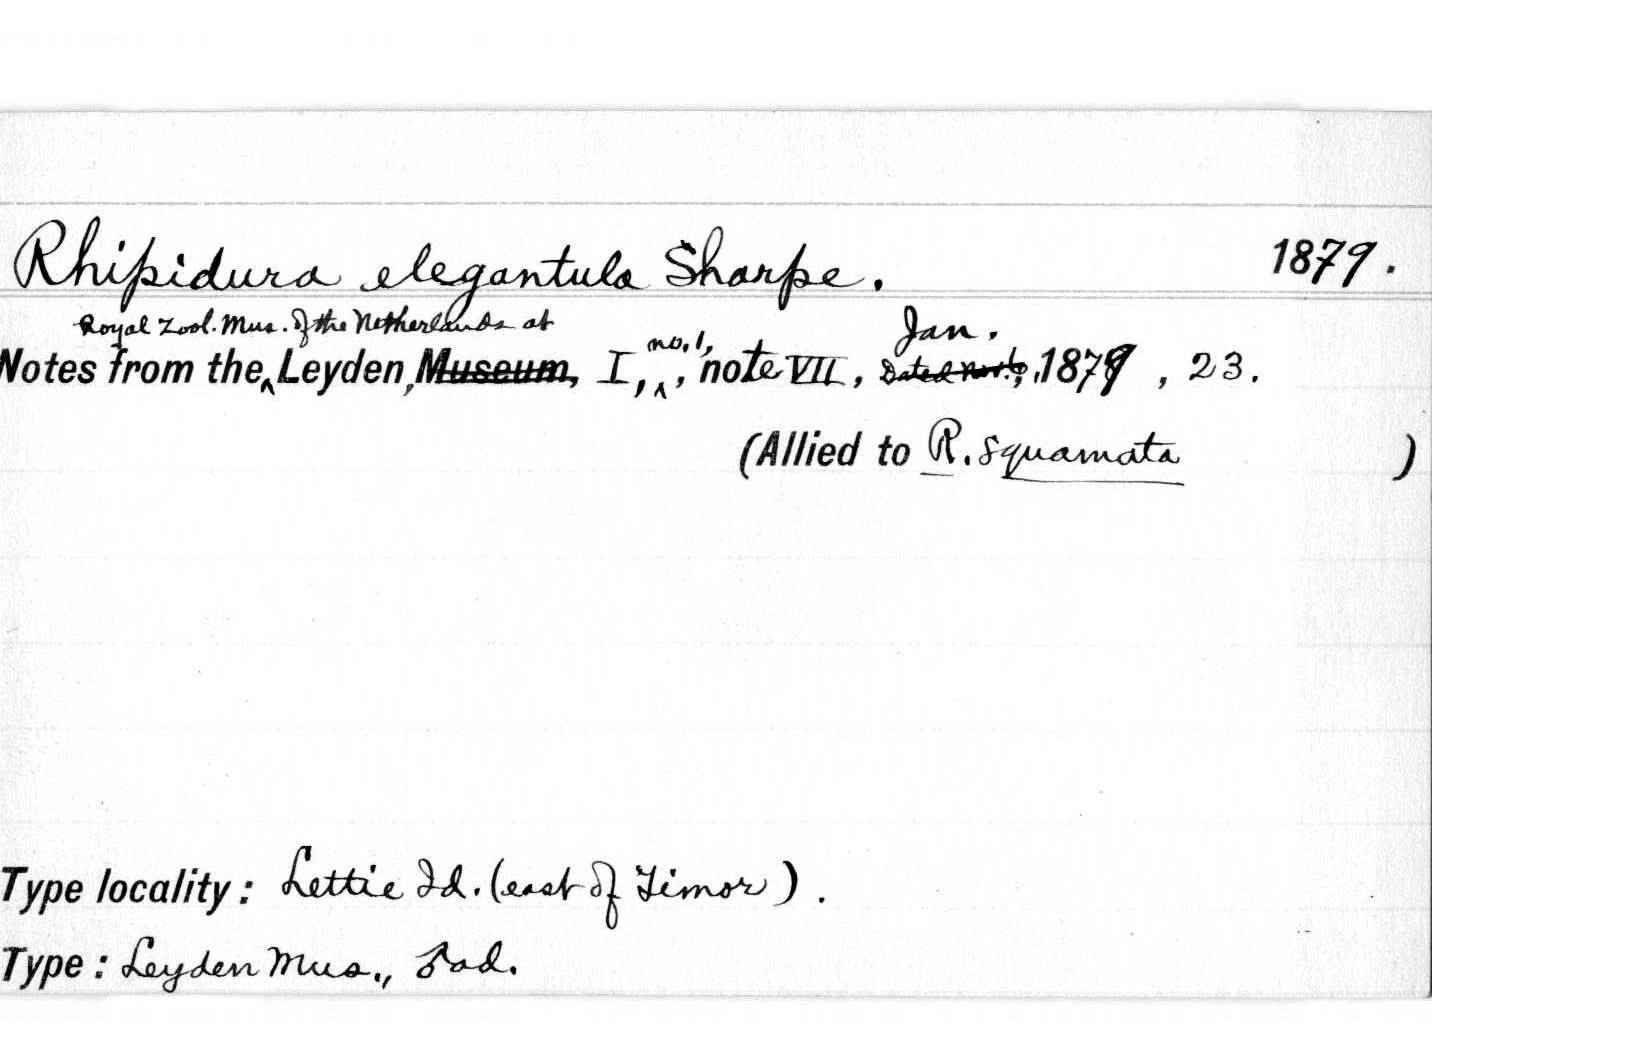 Rhipidura elegantula Sharpe. 1879.
Royal Zool. Mus. of the Netherlands at
no. 1, Jan.
Notes from the ‸ Leyden, Museum, I, ‸, note VII, Dated Nov. 6, 1879, 23.
(Allied to R. squamata )
Type locality: Lettie Id. (east of Timor).
Type: Leyden Mus., ♂ ad.